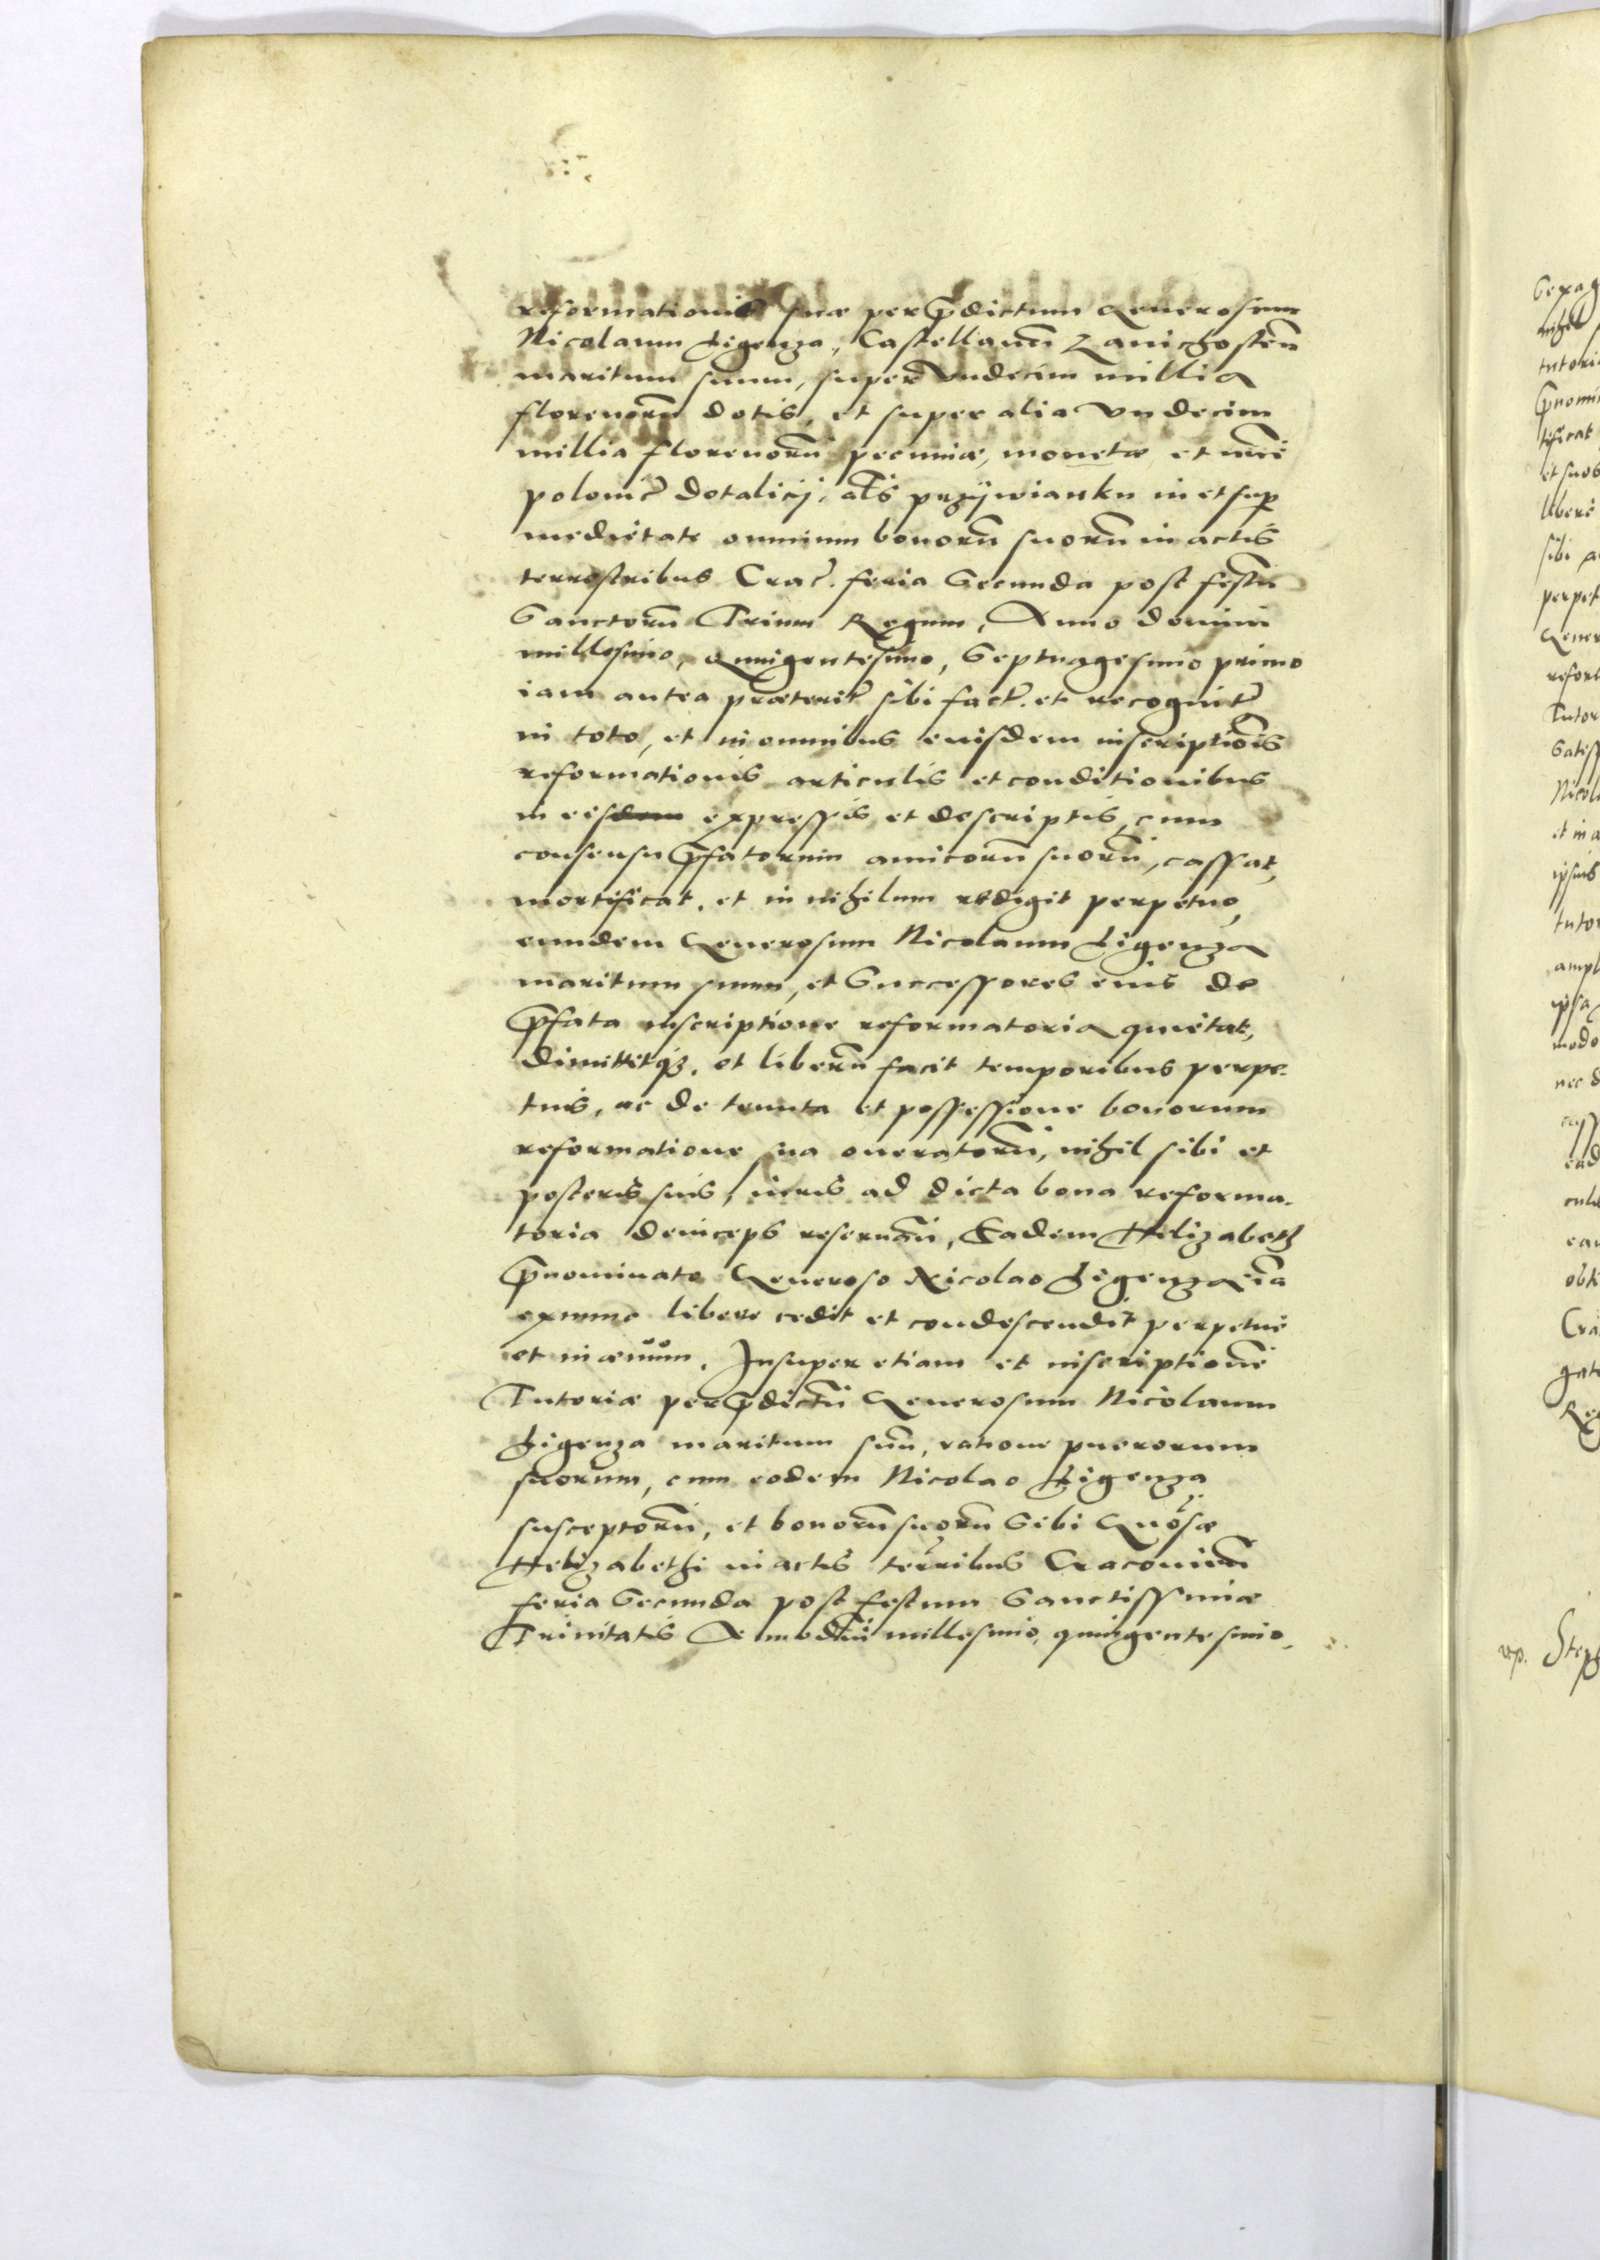 reformationis suæ per p̃dictum Generosum
Nicolaum Ligenza, Castellanũ Zawichosteñ
maritum suum, super Vndecim millia
florenorũ dotis, et super alia Vndecim
millia florenorũ pecuniæ, monetæ et nũri
polonic̃ dotalicij, als̃ przÿwianku in et sup
medietate omnium bonorũ suorũ in actis
terrestribus Crac̃. feria Secunda post festũ
Sanctorũ Trium Regum, Anno domini
millesimo, Quingentesimo, Septuagesimo primo
iam antea præterit̃ sibi fact̃. et recognit̃
in toto, et in omnibus eiusdem inscriptiõis
reformationis articulis et conditionibus
in eisdem expressis et descriptis, cum
consensu p̃fatorum amicorũ suorũ, cassat,
mortificat, et in nihilum redigit perpetuo,
eundem Generosum Nicolaum Ligenza
maritum suum, et Successores eius de
p̃fata inscriptione reformatoria quietat,
dimittitqȝ, et liberũ facit temporibus perpe-
tuis, ac de tenuta et possessione bonorum
reformatione sua oneratorũ, nihil sibi et
posteris suis, iuris ad dicta bona reforma-
toria deinceps reseruãn, Eadem Helizabeth
p̃nominato Generoso Nicolao Ligenza iã
exnunc libere cedit et condescendit perpetue
et in æuum. Insuper etiam et inscriptionẽ
Tutoriæ per p̃dictũ Generosum Nicolaum
Ligenza maritum suũ, ratione puerorum
suorum, cum eodem Nicolao Ligenza
susceptorũ, et bonorũ suorũ Sibi Gnosæ
Helizabethi in actis terribus Cracovieñ
feria Secunda post festum Sanctissimæ
Trinitatis Anno dñi millesimo, quingentesimo,